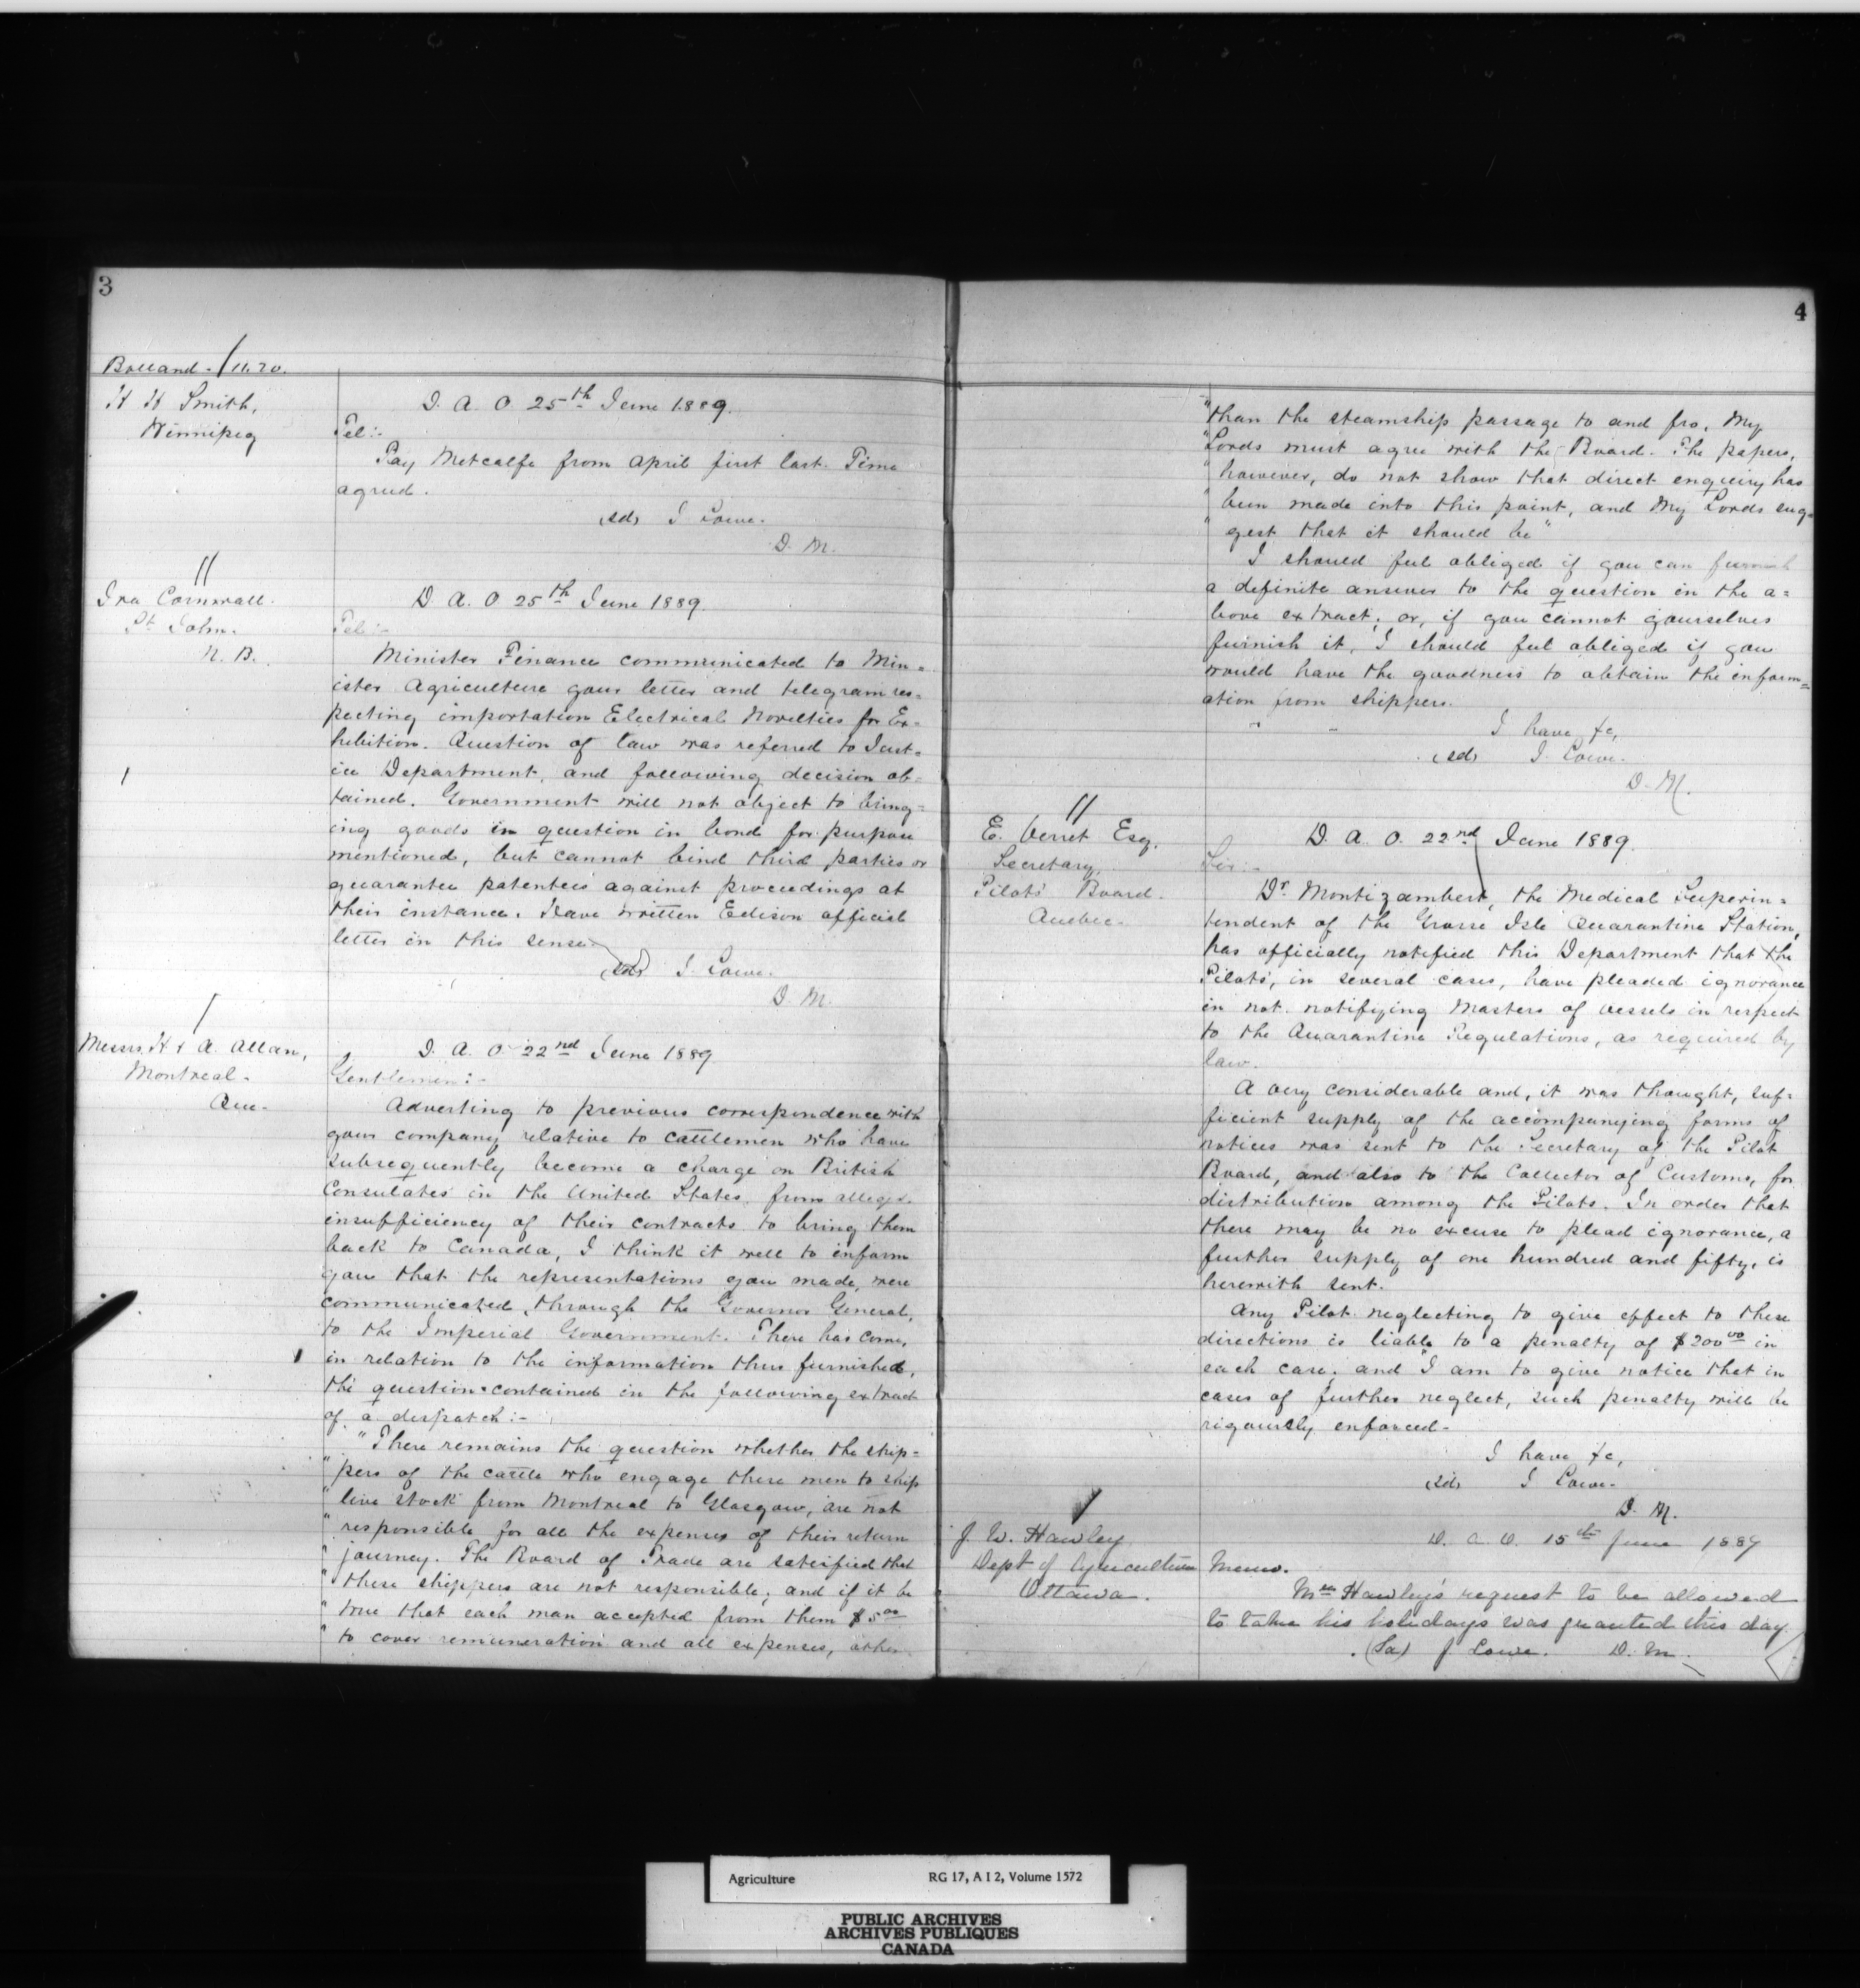 3
Bolland - / 11.20.
H H Smith,
Winnipeg
D. A. O. 25th June 1889.
Tel:-
Pay Metcalfe from April first last. Time
agreed.
(sd) J Lowe.
D. M.
Ira Cornwall.
St John.
N. B.
D. A. O. 25th June 1889.
Tel:-
Minister Finance communicated to Min=
ister Agriculture your letter and telegram res=
pecting importation Electrical Novelties for Ex=
hibition. Question of law was referred to Just=
ice Department, and following decision ob=
tained. Government will not object to bring=
ing goods in question in bond for purpose
mentioned, but cannot bind third parties or
guarantee patentees against proceedings at
their instance. Have written Edison official
letter in this sense
(sd) J. Lowe.
D. M.
Messrs. H & A. Allan,
Montreal.
Que.
D. A. O. 22nd June 1889
Gentlemen:-
Adverting to previous correspondence with
your company relative to cattlemen who have
subsequently become a charge on British
Consulates in the United States from alleged
insufficiency of their contracts to bring them
back to Canada, I think it well to inform
you that the representations you made, were
communicated, through the Governor General,
to the Imperial Government. There has come,
in relation to the information thus furnished,
the question contained in the following extract
of a despatch:-
"There remains the question whether the ship=
"pers of the cattle who engage these men to ship
"live stock from Montreal to Glasgow, are not
"responsible for all the expenses of their return
"journey. The Board of Trade are satisfied that
"these shippers are not responsible; and if it be
"true that each man accepted from them $5.00
"to cover remuneration and all expenses, other
4
"than the steamship passage to and fro, My
"Lords must agree with the Board. The papers,
"however, do not show that direct enquiry has
"been made into this point, and My Lords sug=
"gest that it should be"
I should feel obliged if you can furnish
a definite answer to the question in the a=
bove extract; or, if you cannot yourselves
furnish it, I should feel obliged if you
would have the goodness to obtain the inform=
ation from shippers.
I have &c,
(sd) J. Lowe.
D. M.
E. Verret Esq.
Secretary,
Pilots' Board.
Quebec.
D. A. O. 22nd June 1889.
Sir:-
Dr. Montizambert, the Medical Superin=
tendent of the Grosse Isle Quarantine Station,
has officially notified this Department that the
Pilots', in several cases, have pleaded ignorance
in not notifying Masters of vessels in respect
to the Quarantine Regulations, as required by
law.
A very considerable and, it was thought, suf=
ficient supply of the accompanying forms of
notices was sent to the Secretary of the Pilot
Board, and also to the Collector of Customs, for
distribution among the Pilots. In order that
there may be no excuse to plead ignorance, a
further supply of one hundred and fifty, is
herewith sent.
Any Pilot neglecting to give effect to these
directions is liable to a penalty of $200.00 in
each case; and I am to give notice that in
cases of further neglect, such penalty will be
rigously enforced-
I have &c,
(sd) J. Lowe.
D. M.
J. W. Hawley
Dept of Agriculture
Ottawa.
D. A. O. 15th June 1889
Memo.
Mr Hawley's request to be allowed
to take his holidays was granted this day.
(Sd) J Lowe. D. M.
Agriculture RG 17, A I 2, Volume 1572
PUBLIC ARCHIVES
ARCHIVES PUBLIQUES
CANADA